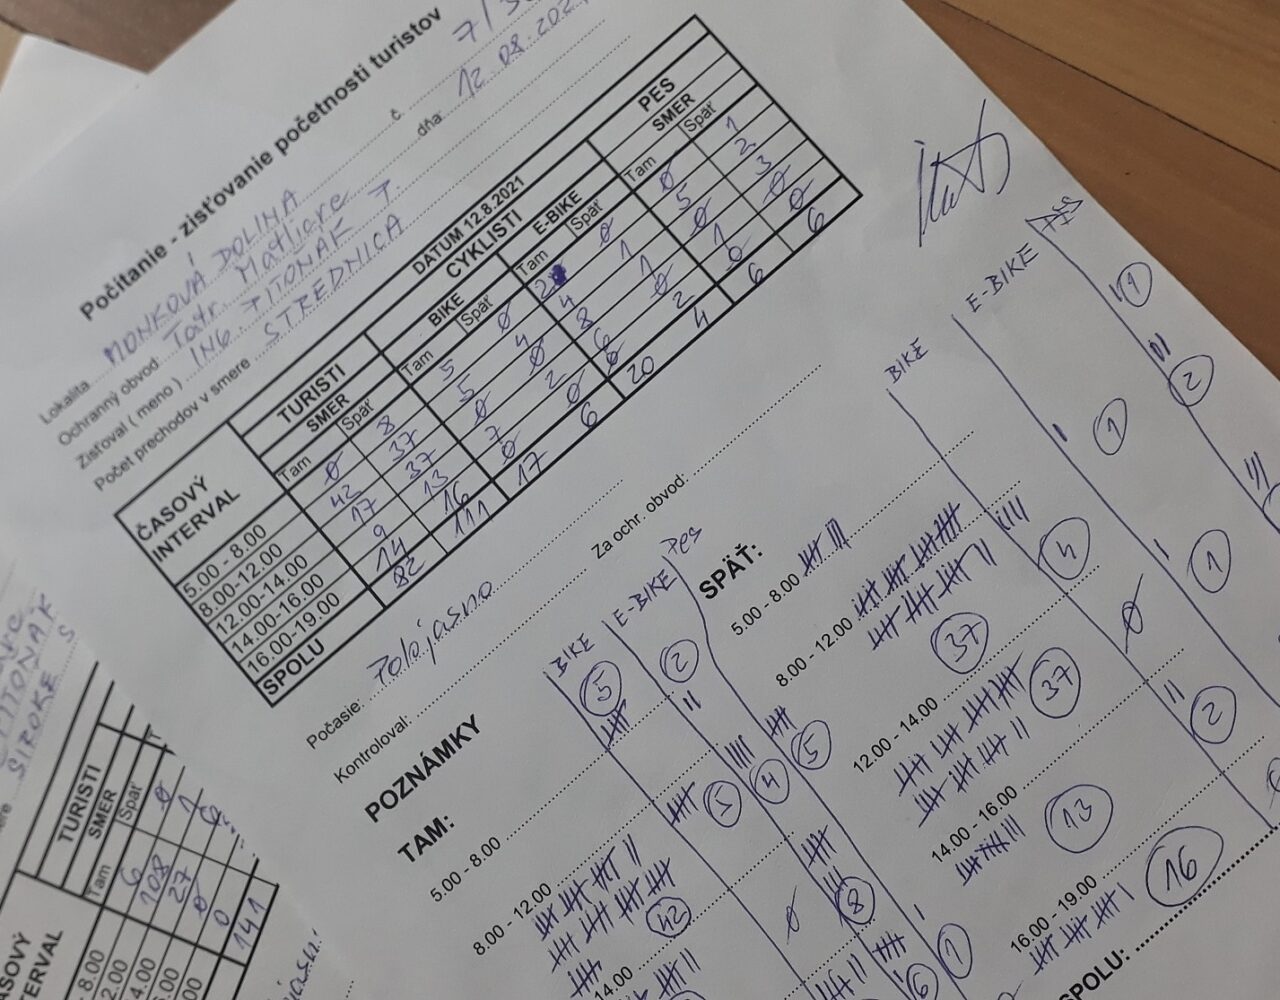 Počítanie - zisťovanie početnosti turistov
č. 7/
dňa: 12.08.2021
Lokalita MONKOVÁ DOLINA
Ochranný obvod Tatr. Matliare
Zisťoval ( meno ) ING. PITONAK P.
Počet prechodov v smere STREDNICA
DATUM 12.8.2021
ČASOVÝ INTERVAL TURISTI CYKLISTI PES
SMER BIKE E-BIKE SMER
Tam Späť Tam Späť Tam Späť Tam Späť
5.00 - 8.00 0 8 5 0 2 0 0 1
8.00-12.00 42 37 5 4 4 1 5 2
12.00-14.00 17 37 0 0 8 1 0 3
14.00-16.00 9 13 7 2 6 0 1 0
16.00-19.00 14 16 0 0 0 2 0 0
SPOLU 82 111 17 6 20 4 6 6
Počasie: Polojasno
Kontroloval:
Za ochr. obvod:
POZNÁMKY
TAM:
BIKE E-BIKE Pes
5.00 - 8.00 5 2
8.00 - 12.00 42 5 4 5
14.00 0 8
6 1
SPÄŤ:
BIKE E-BIKE Pes
5.00 - 8.00 1
8.00 - 12.00 37 4 1 2
12.00 - 14.00 37 0 1
14.00 - 16.00 13 2
16.00 - 19.00 16
SPOLU:
PITONAK
SIROKE S
TURISTI
SMER
Tam Späť
6 0
108 1
27 6
0
0
141